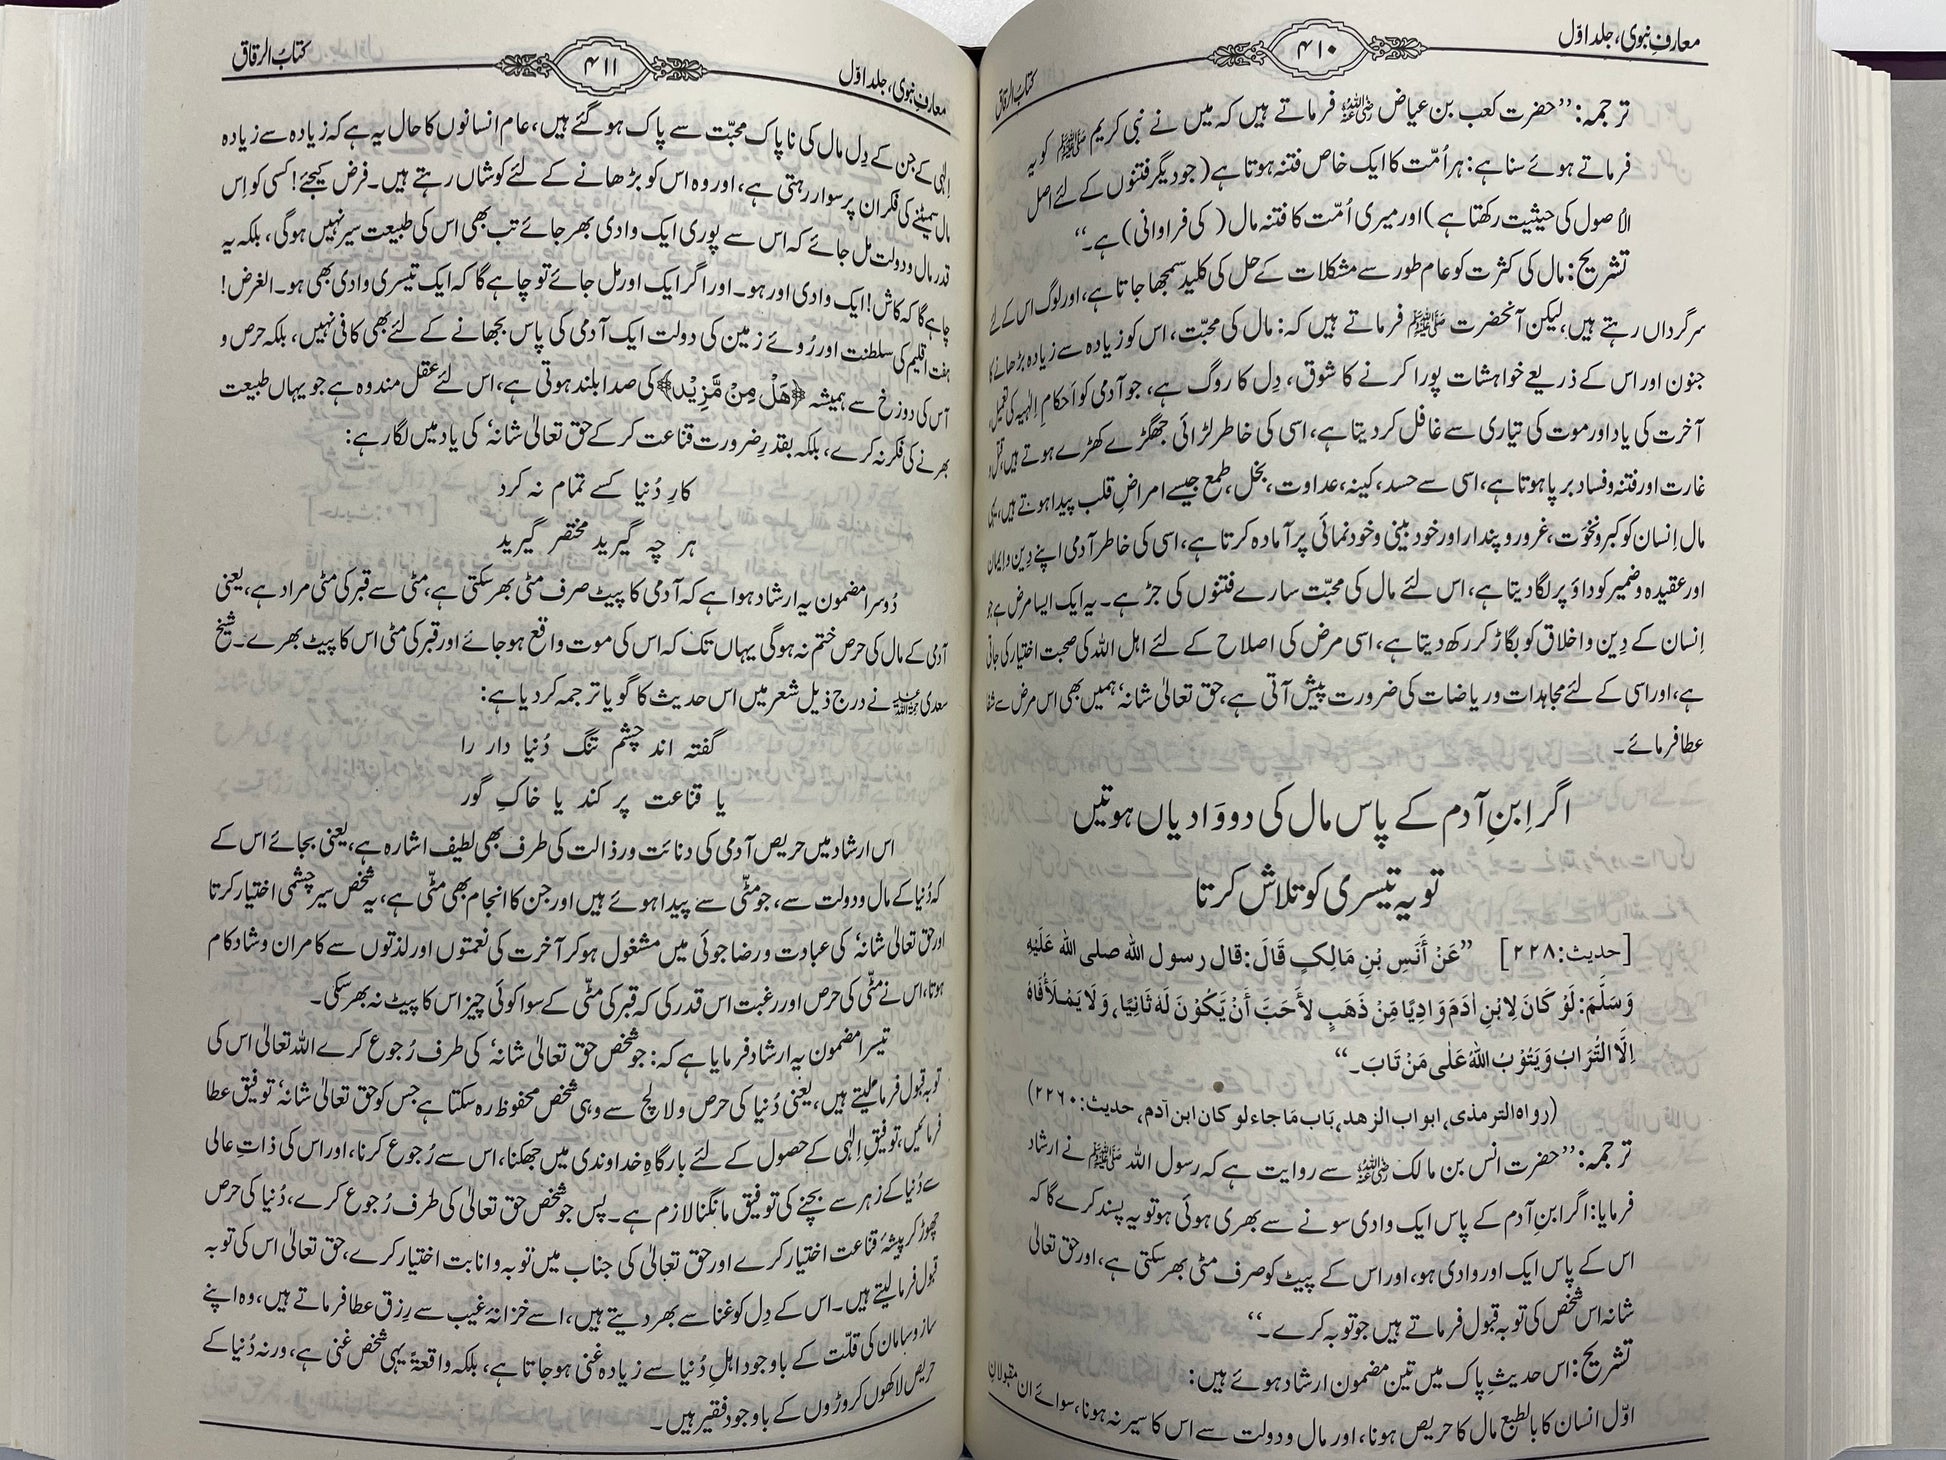 معارفِ نبوی، جلد اوّل
۴۱۰
کتاب الرقاق
ترجمہ: ’’حضرت کعب بن عیاض رضی اللہ عنہ فرماتے ہیں کہ میں نے نبی کریم صلی اللہ علیہ وسلم کو یہ
فرماتے ہوئے سنا ہے: ہر اُمّت کا ایک خاص فتنہ ہوتا ہے (جو دیگر فتنوں کے لئے اصل
الاُصول کی حیثیت رکھتا ہے) اور میری اُمّت کا فتنہ مال (کی فراوانی) ہے۔‘‘
تشریح: مال کی کثرت کو عام طور سے مشکلات کے حل کی کلید سمجھا جاتا ہے، اور لوگ اس کے لئے
سرگرداں رہتے ہیں، لیکن آنحضرت صلی اللہ علیہ وسلم فرماتے ہیں کہ: مال کی محبّت، اس کو زیادہ سے زیادہ بڑھانے کا
جنون اور اس کے ذریعے خواہشات پورا کرنے کا شوق، دِل کا روگ ہے، جو آدمی کو اَحکامِ اِلٰہیہ کی تعمیل،
آخرت کی یاد اور موت کی تیاری سے غافل کردیتا ہے، اسی کی خاطر لڑائی جھگڑے کھڑے ہوتے ہیں، قتل و
غارت اور فتنہ و فساد برپا ہوتا ہے، اسی سے حسد، کینہ، عداوت، بخل، طمع جیسے امراضِ قلب پیدا ہوتے ہیں، یہی
مال اِنسان کو کبر و نخوَت، غرور و پندار اور خود بینی و خود نمائی پر آمادہ کرتا ہے، اسی کی خاطر آدمی اپنے دِین و ایمان
اور عقیدہ و ضمیر کو داؤ پر لگا دیتا ہے، اس لئے مال کی محبّت سارے فتنوں کی جڑ ہے۔ یہ ایک ایسا مرض ہے جو
اِنسان کے دِین و اخلاق کو بگاڑ کر رکھ دیتا ہے، اسی مرض کی اصلاح کے لئے اہل اللہ کی صحبت اختیار کی جاتی
ہے، اور اسی کے لئے مجاہدات و ریاضات کی ضرورت پیش آتی ہے، حق تعالیٰ شانہٗ ہمیں بھی اس مرض سے شفا
عطا فرمائے۔
اگر اِبنِ آدم کے پاس مال کی دو وَادیاں ہوتیں
تو یہ تیسری کو تلاش کرتا
[حدیث:۲۲۸] ’’عَنْ أَنَسِ بْنِ مَالِکٍ قَالَ: قال رسول اللہ صلی اللہ عَلَیْہِ
وَسَلَّمَ: لَوْ کَانَ لِابْنِ اٰدَمَ وَادِیًا مِّنْ ذَھَبٍ لَأَحَبَّ أَنْ یَّکُوْنَ لَہٗ ثَانِیًا، وَلَا یَمْلَأُ فَاہُ
اِلَّا التُّرَابُ وَیَتُوْبُ اللہُ عَلٰی مَنْ تَابَ۔‘‘
(رواہ الترمذی، ابواب الزھد، بَاب مَا جاء لو کان ابن آدم، حدیث:۲۲۶۰)
ترجمہ: ’’حضرت انس بن مالک رضی اللہ عنہ سے روایت ہے کہ رسول اللہ صلی اللہ علیہ وسلم نے ارشاد
فرمایا: اگر ابنِ آدم کے پاس ایک وادی سونے سے بھری ہوئی ہو تو یہ پسند کرے گا کہ
اس کے پاس ایک اور وادی ہو، اور اس کے پیٹ کو صرف مٹی بھر سکتی ہے، اور حق تعالیٰ
شانہ اس شخص کی توبہ قبول فرماتے ہیں جو توبہ کرے۔‘‘
تشریح: اس حدیثِ پاک میں تین مضمون ارشاد ہوئے ہیں:
اوّل انسان کا بالطبع مال کا حریص ہونا، اور مال و دولت سے اس کا سیر نہ ہونا، سوائے ان مقبولانِ
معارفِ نبوی، جلد اوّل
۴۱۱
کتاب الرقاق
اِلٰہی کے جن کے دِل مال کی ناپاک محبّت سے پاک ہوگئے ہیں، عام انسانوں کا حال یہ ہے کہ زیادہ سے زیادہ
مال سمیٹنے کی فکر ان پر سوار رہتی ہے، اور وہ اس کو بڑھانے کے لئے کوشاں رہتے ہیں۔ فرض کیجئے! کسی کو اِس
قدر مال و دولت مل جائے کہ اس سے پوری ایک وادی بھر جائے تب بھی اس کی طبیعت سیر نہیں ہوگی، بلکہ یہ
چاہے گا کہ کاش! ایک وادی اور ہو۔ اور اگر ایک اور مل جائے تو چاہے گا کہ ایک تیسری وادی بھی ہو۔ الغرض!
ہفت اقلیم کی سلطنت اور رُوئے زمین کی دولت ایک آدمی کی پیاس بجھانے کے لئے بھی کافی نہیں، بلکہ حرص و
آس کی دوزخ سے ہمیشہ ﴿ھَلْ مِنْ مَّزِیْد﴾ کی صدا بلند ہوتی ہے، اس لئے عقل مند وہ ہے جو یہاں طبیعت
بھرنے کی فکر نہ کرے، بلکہ بقدرِ ضرورت قناعت کرکے حق تعالیٰ شانہٗ کی یاد میں لگا رہے:
کارِ دُنیا کسے تمام نہ کرد
ہر چہ گیرید مختصر گیرید
دُوسرا مضمون یہ ارشاد ہوا ہے کہ آدمی کا پیٹ صرف مٹی بھر سکتی ہے، مٹی سے قبر کی مٹی مراد ہے، یعنی
آدمی کے مال کی حرص ختم نہ ہوگی یہاں تک کہ اس کی موت واقع ہوجائے اور قبر کی مٹی اس کا پیٹ بھرے۔ شیخ
سعدی رحمۃ اللہ علیہ نے درج ذیل شعر میں اس حدیث کا گویا ترجمہ کردیا ہے:
گفتہ اند چشم تنگ دُنیا دار را
یا قناعت پر کند یا خاکِ گور
اس ارشاد میں حریص آدمی کی دنائت و رذالت کی طرف بھی لطیف اشارہ ہے، یعنی بجائے اس کے
کہ دُنیا کے مال و دولت سے، جو مٹّی سے پیدا ہوئے ہیں اور جن کا انجام بھی مٹّی ہے، یہ شخص سیر چشمی اختیار کرتا
اور حق تعالیٰ شانہٗ کی عبادت و رضا جوئی میں مشغول ہوکر آخرت کی نعمتوں اور لذتوں سے کامران و شادکام
ہوتا، اس نے مٹّی کی حرص اور رغبت اس قدر کی کہ قبر کی مٹّی کے سوا کوئی چیز اس کا پیٹ نہ بھرسکی۔
تیسرا مضمون یہ ارشاد فرمایا ہے کہ: جو شخص حق تعالیٰ شانہٗ کی طرف رُجوع کرے اللہ تعالیٰ اس کی
توبہ قبول فرمالیتے ہیں، یعنی دُنیا کی حرص و لالچ سے وہی شخص محفوظ رہ سکتا ہے جس کو حق تعالیٰ شانہٗ توفیق عطا
فرمائیں، توفیقِ اِلٰہی کے حصول کے لئے بارگاہِ خداوندی میں جھکنا، اس سے رُجوع کرنا، اور اس کی ذاتِ عالی
سے دُنیا کے زہر سے بچنے کی توفیق مانگنا لازم ہے۔ پس جو شخص حق تعالیٰ کی طرف رُجوع کرے، دُنیا کی حرص
چھوڑ کر پیشۂ قناعت اختیار کرے اور حق تعالیٰ کی جناب میں توبہ و انابت اختیار کرے، حق تعالیٰ اس کی توبہ
قبول فرمالیتے ہیں۔ اس کے دِل کو غنا سے بھر دیتے ہیں، اسے خزانۂ غیب سے رِزق عطا فرماتے ہیں، وہ اپنے
ساز و سامان کی قلّت کے باوجود اہلِ دُنیا سے زیادہ غنی ہوجاتا ہے، بلکہ واقعۃً یہی شخص غنی ہے، ورنہ دُنیا کے
حریص لاکھوں کروڑوں کے باوجود فقیر ہیں۔